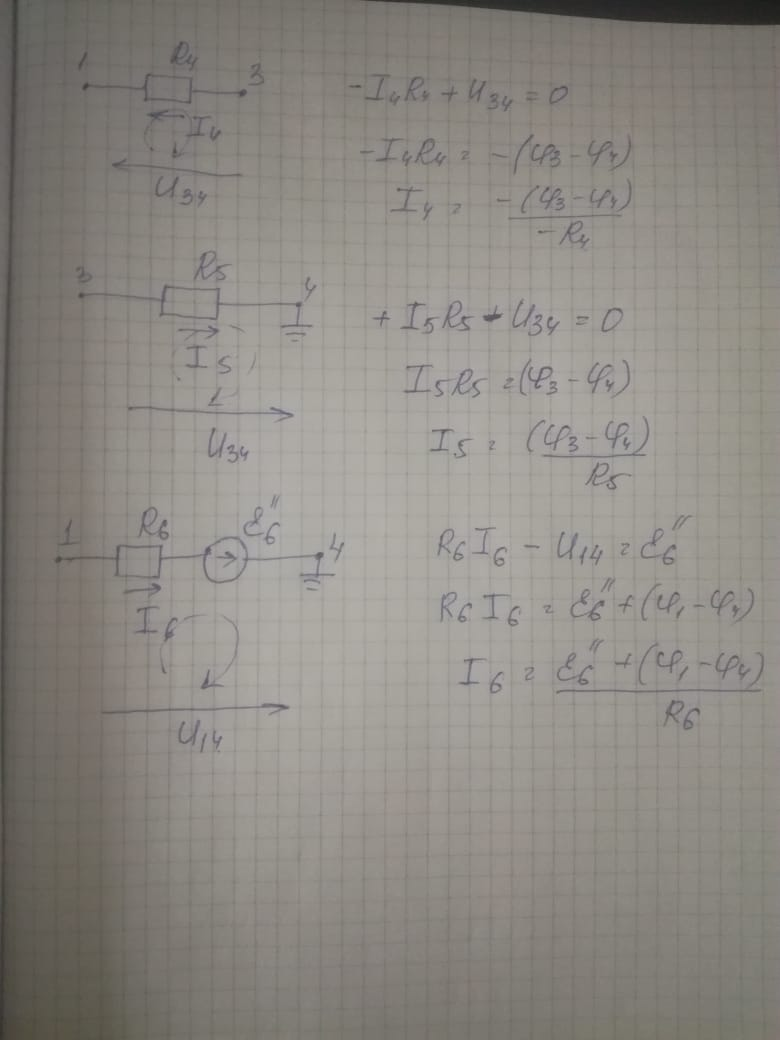 1 R4 3
I4
U34
-I4R4 + U34 = 0
-I4R4 = -(φ3 - φ4)
I4 = -(φ3 - φ4) / -R4
3 R5 4
I5
U34
+ I5R5 - U34 = 0
I5R5 = (φ3 - φ4)
I5 = (φ3 - φ4) / R5
1 R6 Ɛ6'' 4
I6
U14
R6I6 - U14 = Ɛ6''
R6I6 = Ɛ6'' + (φ1 - φ4)
I6 = Ɛ6'' + (φ1 - φ4) / R6